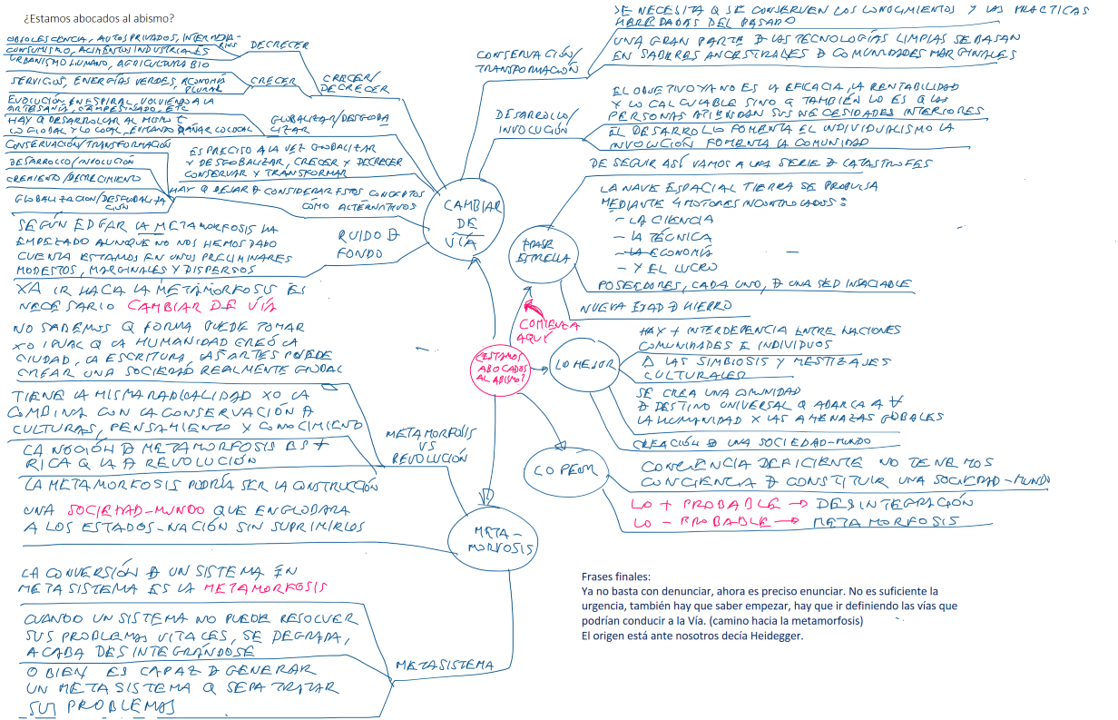 ¿Estamos abocados al abismo?
OBSOLESCENCIA, AUTOS PRIVADOS, INTERMEDIA-
RIOS
CONSUMISMO, ALIMENTOS INDUSTRIALES
URBANISMO HUMANO, AGRICULTURA BIO
DECRECER
SERVICIOS, ENERGÍAS VERDES, ECONOMÍA
PLURAL
CRECER
CRECER/
DECRECER
EVOLUCIÓN EN ESPIRAL, VOLVIENDO A LA
ARTESANÍA, CAMPESINADO, ETC
HAY Q DESARROLLAR AL MISMO T
LO GLOBAL Y LO LOCAL, EVITANDO DAÑAR LO LOCAL
GLOBALIZAR/DESGLOBA
LIZAR
CONSERVACIÓN/TRANSFORMACIÓN
DESARROLLO/INVOLUCIÓN
CRECIMIENTO/DECRECIMIENTO
GLOBALIZACION/DESGLOBALIZA
CIÓN
ES PRECISO A LA VEZ GLOBALIZAR
Y DESGLOBALIZAR, CRECER Y DECRECER
CONSERVAR Y TRANSFORMAR
HAY Q DEJAR D CONSIDERAR ESTOS CONCEPTOS
CÓMO ALTERNATIVOS
SEGÚN EDGAR LA METAMORFOSIS HA
EMPEZADO AUNQUE NO NOS HEMOS DADO
CUENTA ESTAMOS EN UNOS PRELIMINARES
MODESTOS, MARGINALES Y DISPERSOS
RUIDO D
FONDO
XA IR HACIA LA METAMORFOSIS ES
NECESARIO CAMBIAR DE VÍA
CAMBIAR
DE
VÍA
CONSERVACIÓN/
TRANSFORMACIÓN
SE NECESITA Q SE CONSERVEN LOS CONOCIMIENTOS Y LAS PRACTICAS
HEREDADAS DEL PASADO
UNA GRAN PARTE D LAS TECNOLOGÍAS LIMPIAS SE BASAN
EN SABERES ANCESTRALES D COMUNIDADES MARGINALES
DESARROLLO/
INVOLUCIÓN
EL OBJETIVO YA NO ES LA EFICACIA, LA RENTABILIDAD
Y LO CALCULABLE SINO Q TAMBIÉN LO ES Q LAS
PERSONAS ATIENDAN SUS NECESIDADES INTERIORES
EL DESARROLLO FOMENTA EL INDIVIDUALISMO LA
INVOLUCIÓN FOMENTA LA COMUNIDAD
FRASE
ESTRELLA
DE SEGUIR ASÍ VAMOS A UNA SERIE D CATASTROFES
LA NAVE ESPACIAL TIERRA SE PROPULSA
MEDIANTE 4 MOTORES INCONTROLADOS:
- LA CIENCIA
- LA TÉCNICA
- LA ECONOMÍA
- Y EL LUCRO
POSEEDORES, CADA UNO, D UNA SED INSACIABLE
NUEVA EDAD D HIERRO
COMIENZA
AQUÍ
¿ESTAMOS
ABOCADOS
AL ABISMO?
LO MEJOR
HAY + INTERDEPENCIA ENTRE NACIONES
COMUNIDADES E INDIVIDUOS
D LAS SIMBIOSIS Y MESTIZAJES
CULTURALES
SE CREA UNA COMUNIDAD
D DESTINO UNIVERSAL Q ABARCA A ∀
LA HUMANIDAD X LAS AMENAZAS GLOBALES
CREACIÓN D UNA SOCIEDAD-MUNDO
LO PEOR
CONCIENCIA DEFICIENTE NO TENEMOS
CONCIENCIA D CONSTITUIR UNA SOCIEDAD-MUNDO
LO + PROBABLE → DESINTEGRACIÓN
LO - PROBABLE → METAMORFOSIS
NO SABEMOS Q FORMA PUEDE TOMAR
XO IGUAL Q LA HUMANIDAD CREÓ LA
CIUDAD, LA ESCRITURA, LAS ARTES PUEDE
CREAR UNA SOCIEDAD REALMENTE GLOBAL
TIENE LA MISMA RADICALIDAD XO LA
COMBINA CON LA CONSERVACIÓN D
CULTURAS, PENSAMIENTO Y CONOCIMIENTO
LA NOCIÓN D METAMORFOSIS ES +
RICA Q LA D REVOLUCIÓN
METAMORFOSIS
VS
REVOLUCIÓN
LA METAMORFOSIS PODRÍA SER LA CONSTRUCCIÓN
UNA SOCIEDAD-MUNDO QUE ENGLOBARA
A LOS ESTADOS-NACIÓN SIN SUPRIMIRLOS
META-
MORFOSIS
LA CONVERSIÓN D UN SISTEMA EN
METASISTEMA ES LA METAMORFOSIS
CUANDO UN SISTEMA NO PUEDE RESOLVER
SUS PROBLEMAS VITALES, SE DEGRADA,
ACABA DESINTEGRÁNDOSE
O BIEN ES CAPAZ D GENERAR
UN METASISTEMA Q SEPA TRATAR
SUS PROBLEMAS
METASISTEMA
Frases finales:
Ya no basta con denunciar, ahora es preciso enunciar. No es suficiente la
urgencia, también hay que saber empezar, hay que ir definiendo las vías que
podrían conducir a la Vía. (camino hacia la metamorfosis)
El origen está ante nosotros decía Heidegger.